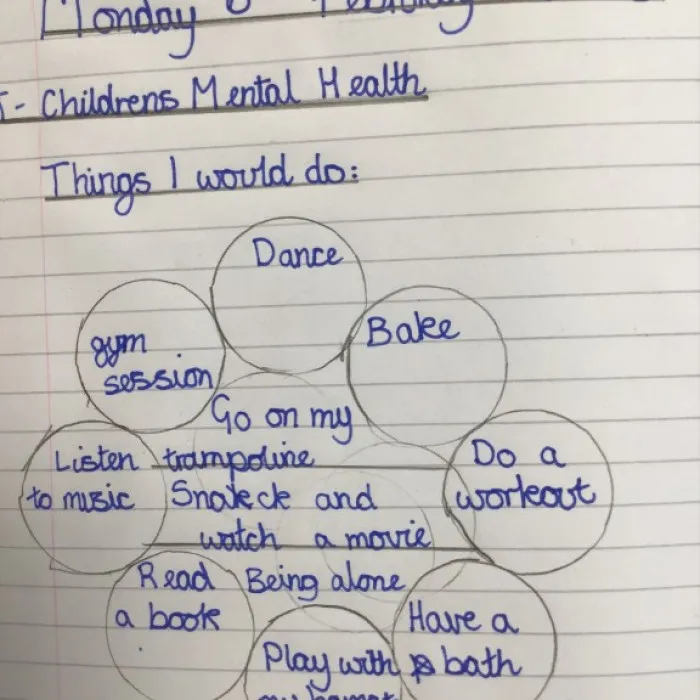 Monday
- Childrens Mental Health
Things I would do:
Dance
Bake
gym
session
Go on my
Listen
trampoline
Do a
to music
Snack and
workout
watch a movie
Read
Being alone
a book
Have a
Play with
bath
my